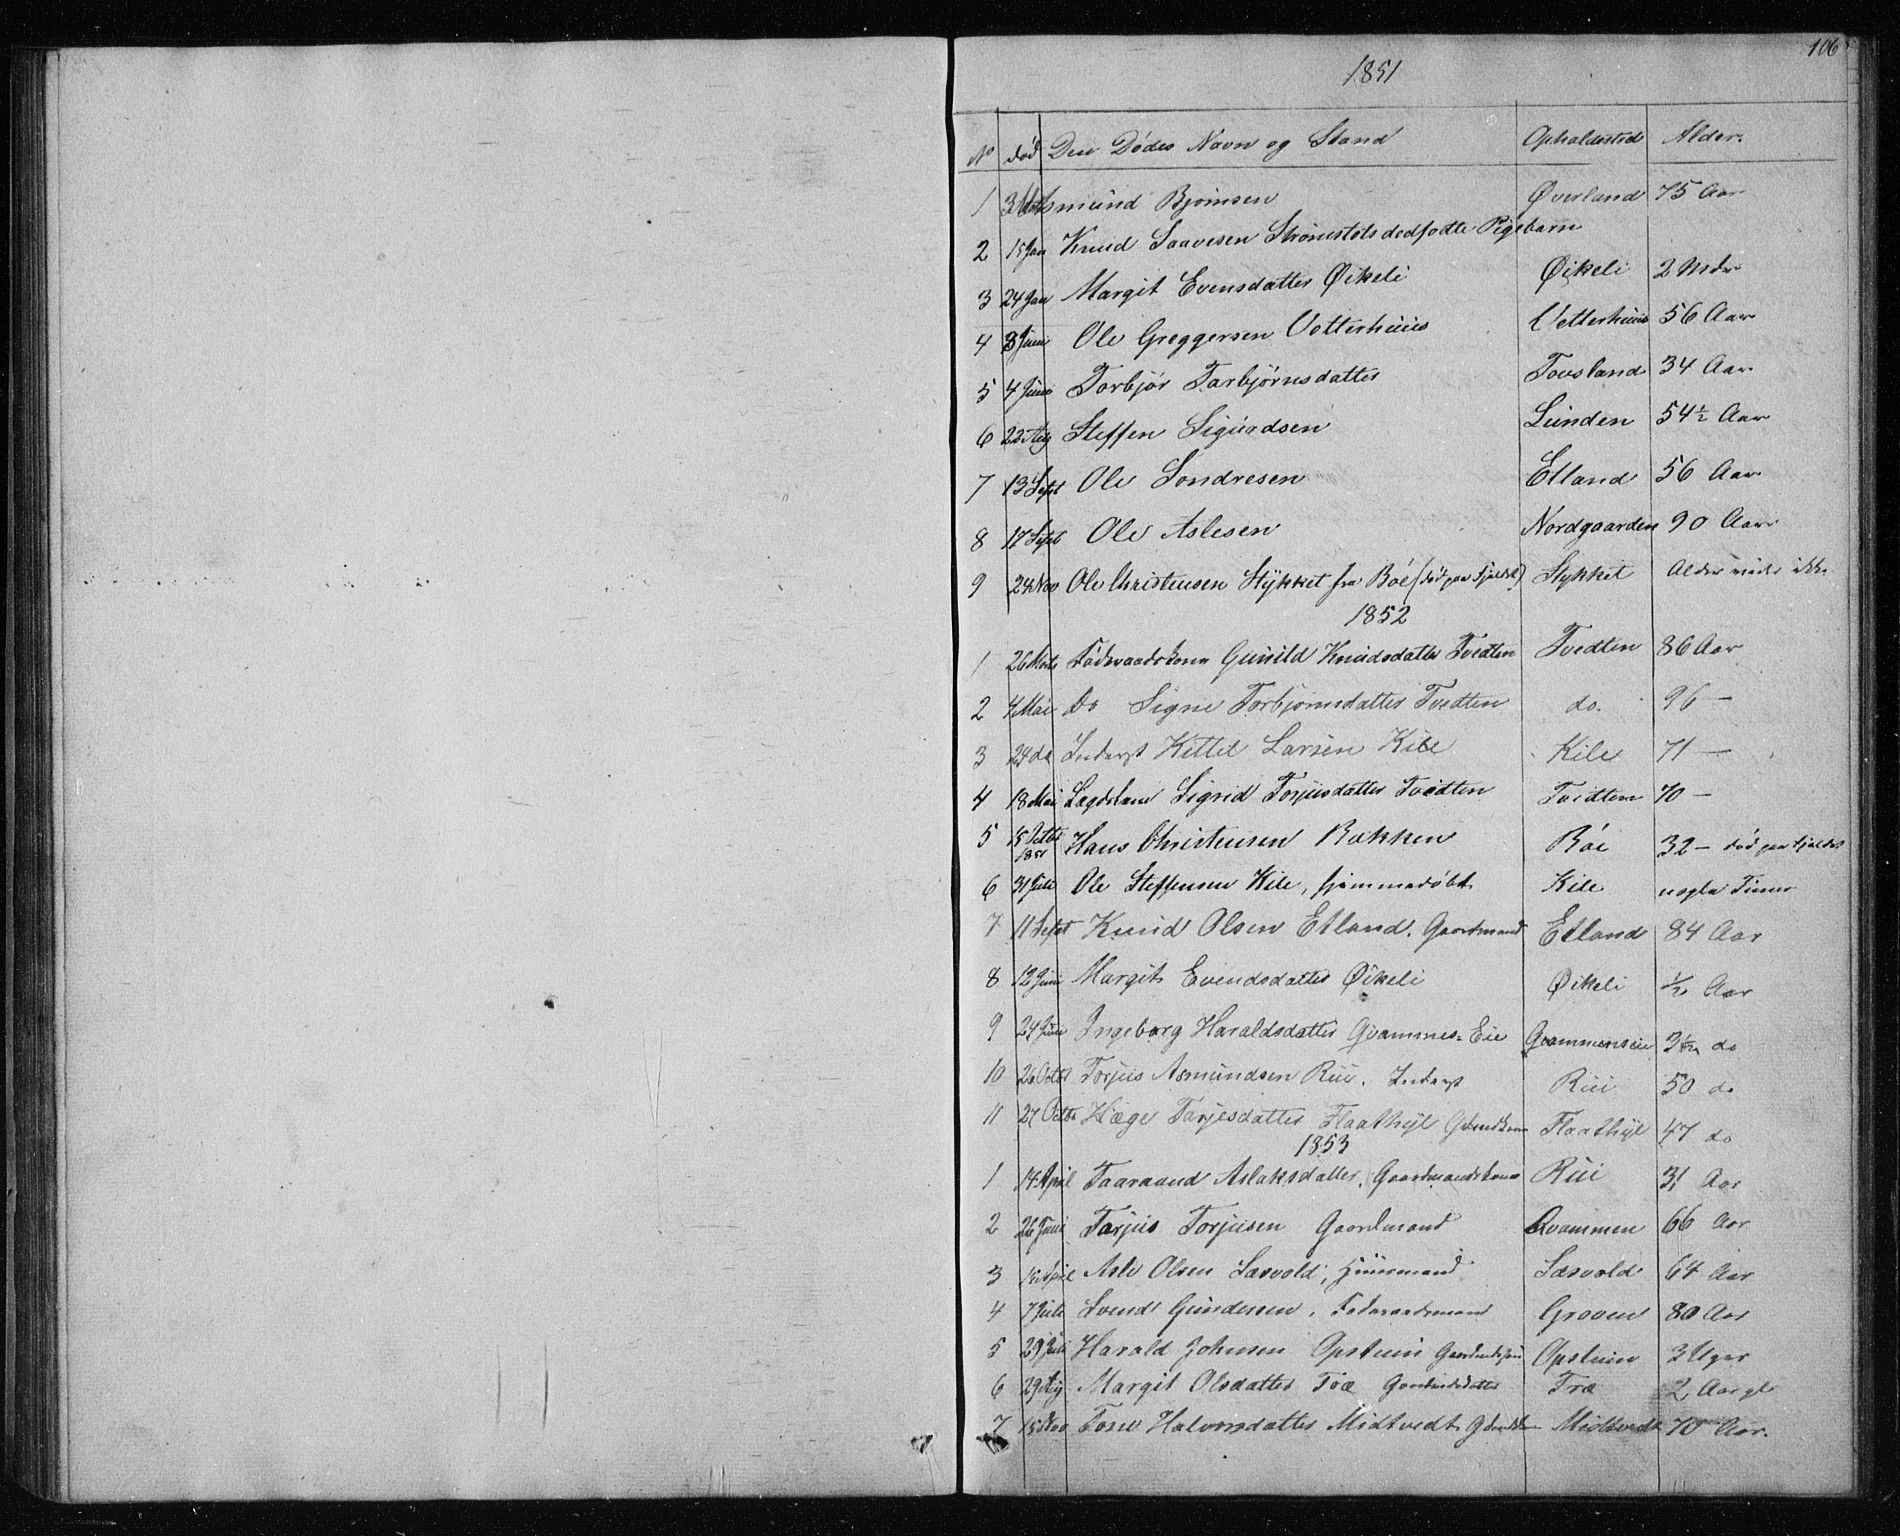 106
1851
No død Den Dødes Navn og Stand Opholdssted Alder.
1 Asmund Bjørnsen Øverland 75 Aar
2 15 Jan Knud Saavesen Strømstols dødfødte Pigebarn
3 24 Jan Margit Evensdatter Øikeli Øikeli 2 Mdr
4 3 Juni Ole Greggersen Vetterhuus Vetterhuus 56 Aar
5 4 Juni Torbjør Tarbjørnsdatter Tovsland 34 Aar
6 22 Aug Steffen Sigurdsen Lunden 54½ Aar
7 13 Sept Ole Sondresen Etland 56 Aar
8 17 Sept Ole Aslesen Nordgaarden 90 Aar
9 24 Nov Ole Christensen Stykket fra Bøe (død paa Fjeldet) Stykket Alder vides ikke
1852
1 26 Føderaadskone Gunild Knudsdatter Tvedten Tvedten 86 Aar
2 4 Mai Do Signe Torbjørnsdatter Tvedten do. 96 —
3 24 do Inderst Kittel Larsen Kile Kile 71 —
4 18 Mai Lægdslem Sigrid Torjusdatter Tvedten Tvedten 70 —
5 15 Octbr 1851 Hans Christensen Bakken Bøe 32 — død paa Fjeldet
6 31 Juli Ole Steffensen Kile, hjemmedøbt Kile nogle Timer
7 11 Sept Knud Olsen Etland. Gaardmand Etland 84 Aar
8 12 Juni Margit Evendsdatter Øikeli Øikeli Aar
9 24 Juni Ingeborg Haraldsdatter Qvammes-Eie Qvammenseie do
10 26 Octbr Torjus Asmundsen Rui. Inderst Rui 50 do
11 27 Octbr Hæge Tarjesdatter Flaathyl Flaathyl 47 do
1853
1 14 April Taaraand Aslaksdatter, Gaardmandskone Rui 31 Aar
2 26 Juni Tarjus Torjusen Gaardmand Qvammen 66 Aar
3 15 April Asle Olsen Sæsvold, Huusmand Sæsvold 64 Aar
4 7 Juli Svend Gundersen. Føderaadsmand Groven 80 Aar
5 29 Juli Harald Johnsen Opstuen Opstuen 3 Uger
6 29 Aug Margit Olsdatter Træ Træ 2 Aar gl
7 15 Nov Tone Halvorsdatter Midtvedt Midtvedt 70 Aar.